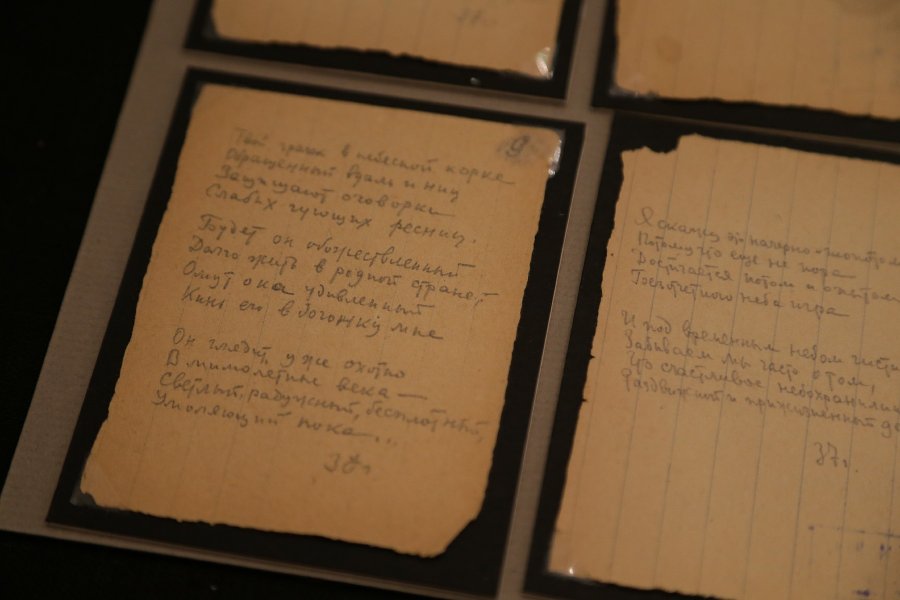 9
Твой зрачок в небесной корке
Обращенный вдаль и ниц
Защищают оговорки
Слабых чующих ресниц.
Будет он обожествленный
Долго жить в родной стране,—
Омут ока удивленный
Кинь его вдогонку мне
Он глядит уже охотно
В мимолетные века —
Светлый, радужный, бесплотный,
Умоляющий пока...
37 г
Я скажу это начерно - шопотом
Потому что еще не пора
Достигается потом и опытом
Безотчетного неба игра
И под временным небом чисти
Забываем мы часто о том,
Что счастливое небохранили
Раздвижной и прижизненный д
37 г.